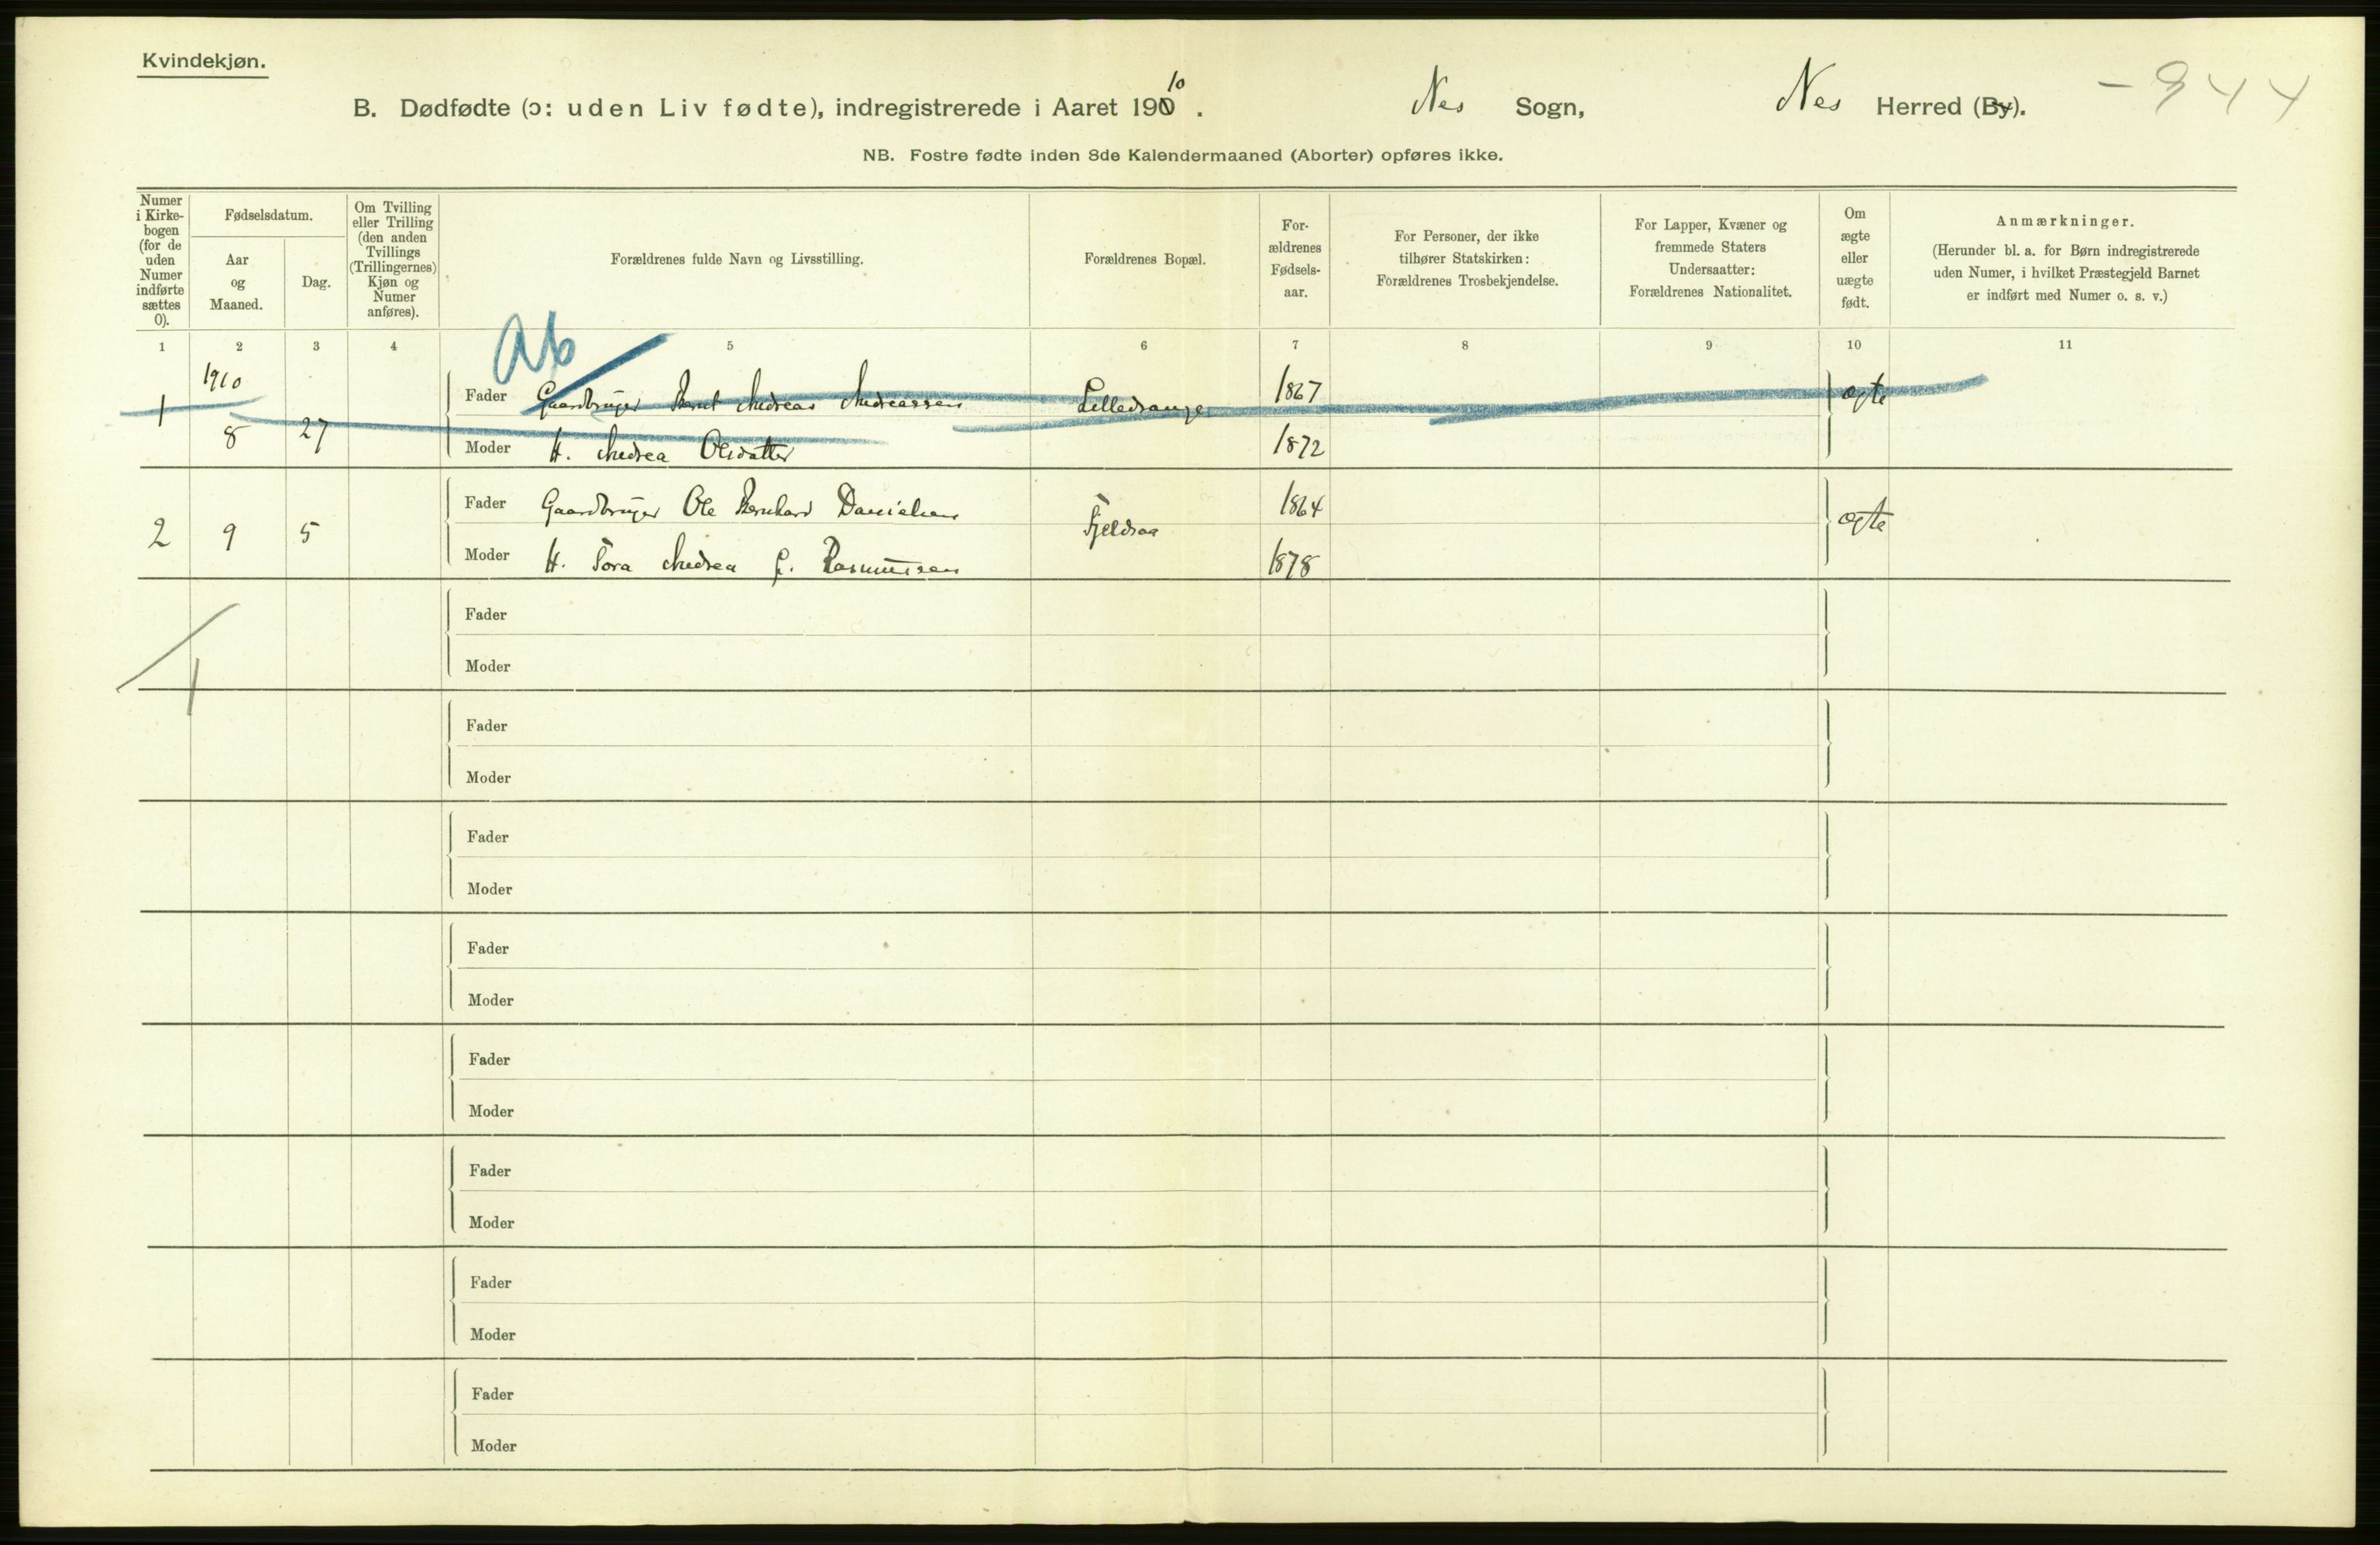 Kvindekjøn.
B. Dødfødte (ɔ: uden Liv fødte), indregistrerede i Aaret 1910. Nes Sogn, Nes Herred (By). - 344
NB. Fostre fødte inden 8de Kalendermaaned (Aborter) opføres ikke.
Numer i Kirke-bogen (for de uden Numer indførte sættes 0).
Fødselsdatum.
Aar og Maaned.
Dag.
Om Tvilling eller Trilling (den anden Tvillings (Trillingernes) Kjøn og Numer anføres).
Forældrenes fulde Navn og Livsstilling.
Forældrenes Bopæl.
For-ældrenes Fødsels-aar.
For Personer, der ikke tilhører Statskirken: Forældrenes Trosbekjendelse.
For Lapper, Kvæner og fremmede Staters Undersaatter: Forældrenes Nationalitet.
Om ægte eller uægte født.
Anmærkninger.
(Herunder bl. a. for Børn indregistrerede uden Numer, i hvilket Præstegjeld Barnet er indført med Numer o. s. v.)
1 2 3 4 5 6 7 8 9 10 11
Ab
1910
1 8 27 Fader Gaardbruger Bernt Andreas Andreassen Lilledrange 1867 ægte
Moder H. Andrea Olsdatter 1872
2 9 5 Fader Gaardbruger Ole Bernhard Danielsen Fjeldsaa 1864 ægte
Moder H. Tora Andrea f. Rasmussen 1878
Fader
Moder
1
Fader
Moder
Fader
Moder
Fader
Moder
Fader
Moder
Fader
Moder
Fader
Moder
Fader
Moder